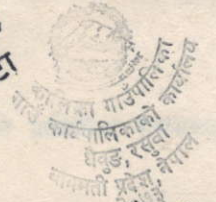 कालिका गाउँपालिका
गाउँ कार्यपालिकाको कार्यालय
धैबुङ, रसुवा
बागमती प्रदेश, नेपाल